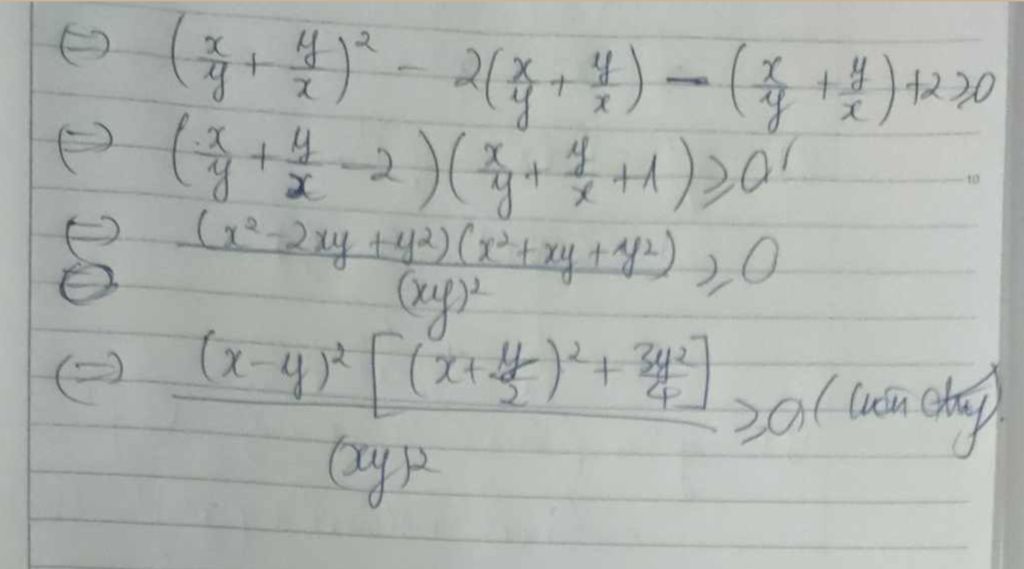 ⇔ (x/y + y/x)² - 2(x/y + y/x) - (x/y + y/x) + 2 ≥ 0
⇔ (x/y + y/x - 2)(x/y + y/x + 1) ≥ 0
⇔ (x² - 2xy + y²)(x² + xy + y²) / (xy)² ≥ 0
⇔ (x - y)² [(x + y/2)² + 3y²/4] / (xy)² ≥ 0 (luôn đúng).